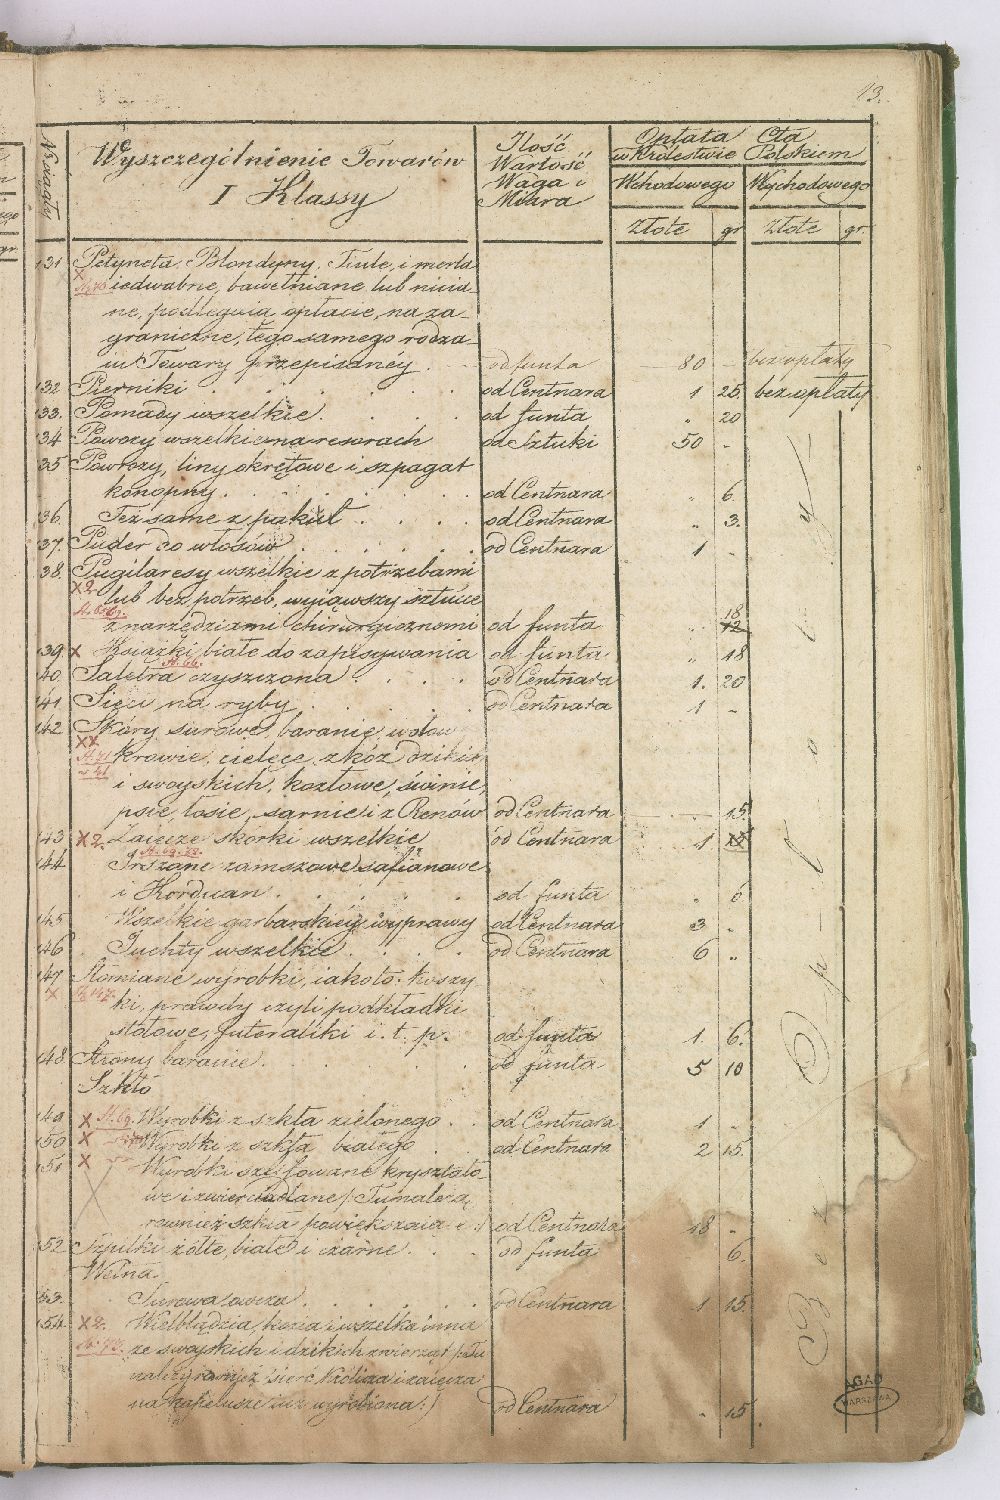 13.
Wyszczególnienie Towarów
I Klassy
Ilość
Wartość
Waga i
Miara
Opłata Cła
w Królestwie Polskiem
Wchodowego Wychodowego
Złote gr Złote gr.
131 Petyneta, Blondyny, Tiule, i merla
iedwabne, bawełniane, lub nicia-
ne, podlegaią opłacie, na za-
graniczne, tego samego rodza-
iu Towary przepisanéy. od funta 80 - bez opłaty
132 Pierniki . od Centnara 1 25. bez opłaty
133. Pomady wszelkie. od funta " 20
134 Powozy wszelkie na resorach od Sztuki 50 -
135 Powrozy, liny okrętowe i szpagat
konopny. od Centnara " 6.
136. Też same z pakuł . od Centnara " 3.
137. Puder do włosów . od Centnara 1 -
138. Pugilaresy wszelkie z potrzebami
x2 lub bez potrzeb, wyiąwszy sztućce
z narzędziami chirurgicznemi od funta " 18 12
139 x Ksiązki białe do zapisywania od funta " 18
St. 66.
140. Saletra czyszczona . od Centnara 1. 20
141 Sieci na ryby. od Centnara 1 -
142 Skóry surowe, baranie, wołow
xx krowie, cielęce, z kóz dzikich
i swoyskich, kozłowe, świnie,
psie, łosie, sarnie i z Renów od Centnara - 15.
143 x2 Zaięcze skórki wszelkie od Centnara 1
144 Irszane zamszowe safianowe
i Korduan . od funta " 6
145 Wszelkie garbarskiéy wyprawy od Centnara 3 "
146 Juchty wszelkie . od Centnara 6 "
147 Słomiane wyrobki, iakoto: koszy-
x St. 147. ki, prawdy czyli podkładki
stołowe, futeraliki i. t. p. od funta 1. 6.
148 Strony baranie. od funta 5 10
Szkło
149 x Wyrobki z szkła zielonego . od Centnara 1 -
150 x Wyrobki z szkła białego . od Centnara 2 15.
151 x Wyrobki szlifowane kryształo-
we i zwierciadlane /: Tu należą
również szkła powiększaiące :/ od Centnara 18 "
152 Szpilki żółte, białe i czarne . od funta 6.
Wełna
153. Surowa owcza . od Centnara 1 15.
154. x2. Wielbłądzia, kozia i wszelka inna
St. 73. ze swoyskich i dzikich zwierząt /: Tu
należy również sierć królicza i zaięcza
na kapelusze iuż wyrobiona :/ od Centnara " 15.
Bez opłaty
AGAD
WARSZAWA